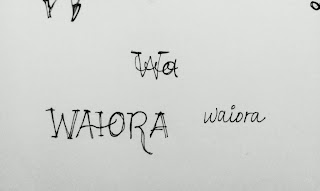 Wa
WAIORA waiora